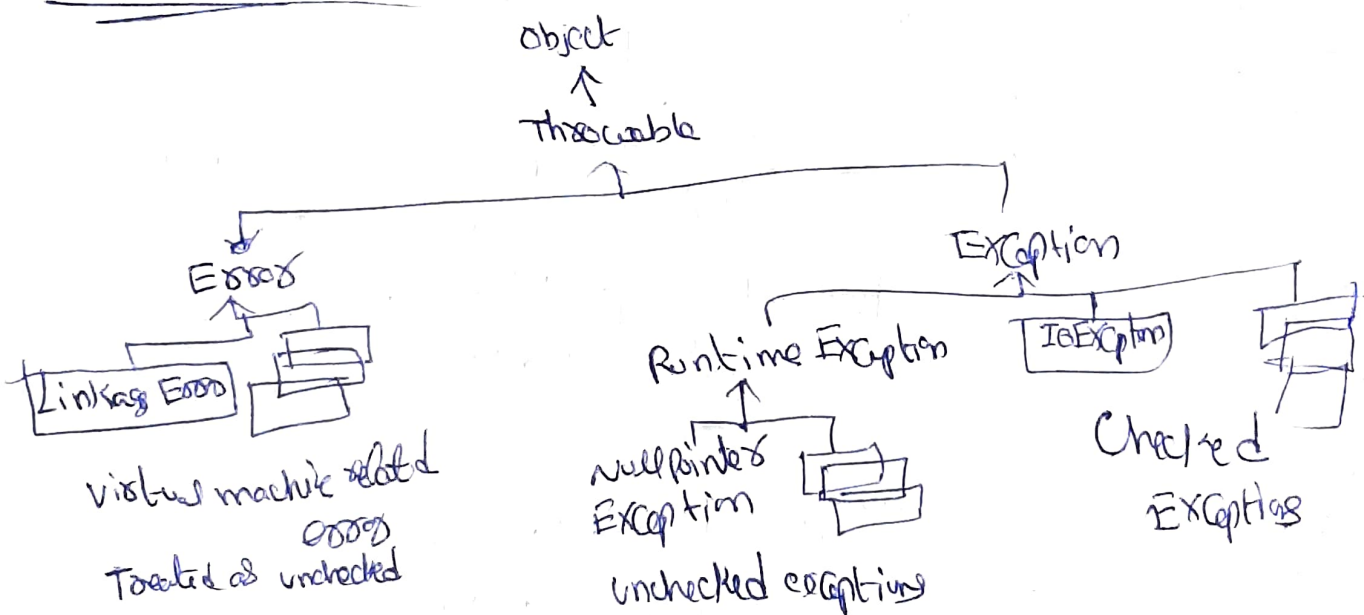 Object
Throwable
Error
Exception
Linkage Error
Runtime Exception
IOException
Virtual machine related
error
Treated as unchecked
Nullpointer
Exception
unchecked exceptions
Checked
Exceptions